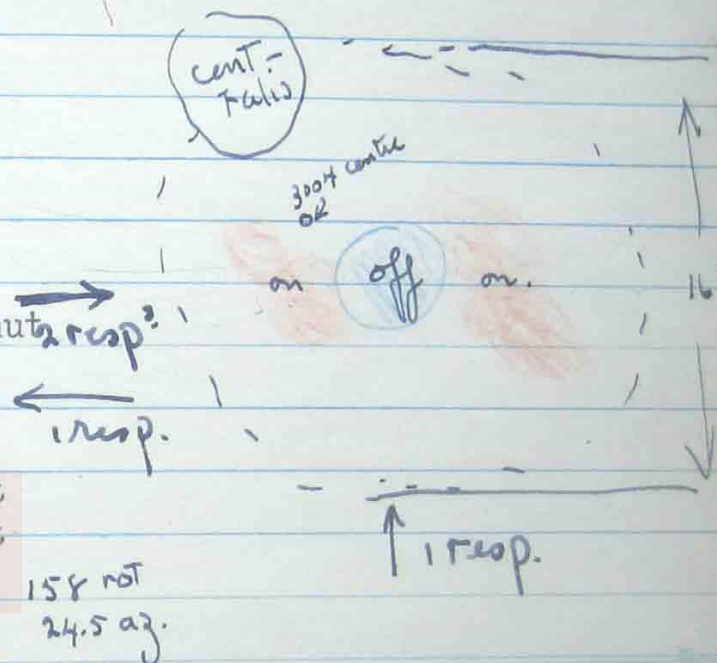 cent.-
3004 centre
OK
on off on.
16
2 resps.
1 resp.
1 resp.
158 rot
24.5 az.